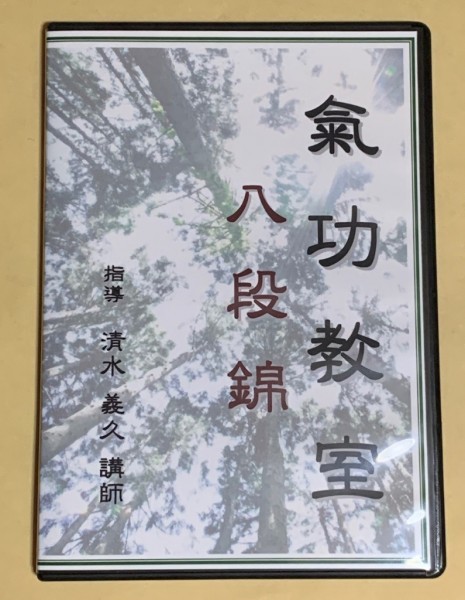 氣功教室
八段錦
指導 清水 義久 講師